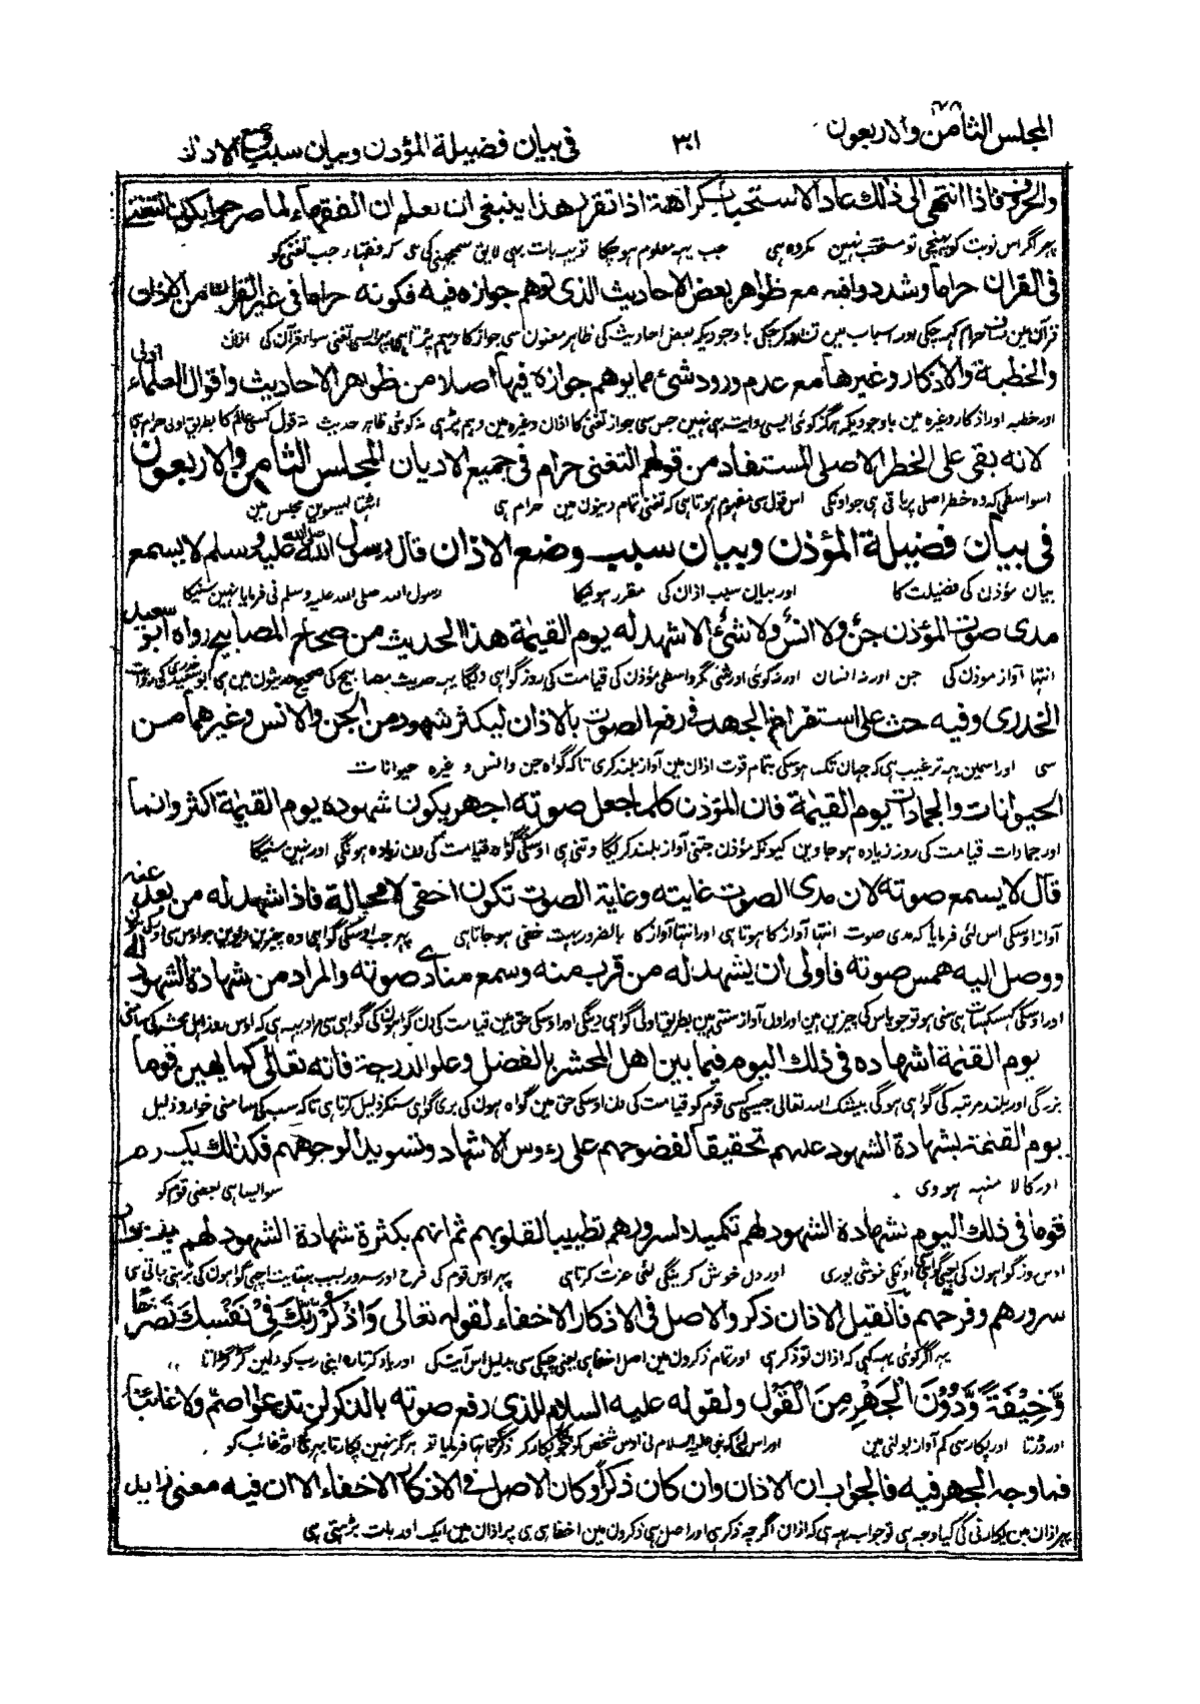 المجلس الثامن والاربعون ٣٠١ فى بيان فضيلة المؤذن وبيان سبب وضع الاذان
والحروف فاذا انتهى الى ذلك عاد الاستحباب كراهة اذا تقرر هذا ينبغى ان يعلم ان الفقهاء لما صرحوا بكون التغنى
پهر اگر اس نوبت کو پہنچی تو مستحب نہین مکروہ ہی جب یہہ معلوم ہو چکا تو یہہ بات بہی لایق سمجہنی کی ہی کہ فقہاء جب تغنی کو
فى القران حراما وشددوا فيه مع ظواهر بعض الاحاديث الذى توهم جوازه فيه فكونه حراما فى غير القران من الاذان
قرآن مین حرام کہہ چکی اور اسباب مین تشدد کر چکی با وجودیکہ بعض احادیث کی ظاہر معنون سی جواز کا وہم پڑتا ہی پہر ایسی تغنی سواء قرآن کی اذان
والخطبة والاذكار وغيرها مع عدم ورود شئ مما يوهم جوازه فيها اصلا من ظواهر الاحاديث واقوال العلماء اولى
اور خطبہ اور اذکار وغیرہ مین با وجودیکہ ہرگز کوئی ایسی روایت بہی نہین جس سی جواز تغنی کا اذان وغیرہ مین وہم پڑی نہ کوئی ظاہر حدیث نہ قول کسی عالم کا بطریق اولی حرام ہی
لانه بقى على الخطر الاصلى المستفاد من قولهم التغنى حرام فى جميع الاديان المجلس الثامن والاربعون
اسواسطی کہ وہ خطر اصلی پر باقی ہی جو اونکی اس قول سی مفہوم ہوتا ہی کہ تغنی تمام دینون مین حرام ہی اڑتالیسوین مجلس مین
فى بيان فضيلة المؤذن وبيان سبب وضع الاذان قال رسول الله صلى الله عليه وسلم لا يسمع
بیان مؤذن کی فضیلت کا اور بیان سبب اذان کی مقرر ہونیکا رسول اللہ صلی اللہ علیہ وسلم نی فرمایا نہین سنیگا
مدى صوت المؤذن جن ولا انس ولا شئ الا شهد له يوم القيمة هذا الحديث من صحاح المصابيح رواه ابو سعيد
انتہا آواز موذن کی جن اور نہ انسان اور نہ کوئی اور شئی مگر واسطی مؤذن کی قیامت کی روز گواہی دیگا یہہ حدیث مصابیح کی صحیح حدیثون مین ہی ابو سعید خدری کی روایت
الخدرى وفيه حث على استفراغ الجهد فى رفع الصوت بالاذان ليكثر شهوده من الجن والانس وغيرهما من
سی اور اسمین یہہ ترغیب ہی کہ جہان تک ہو سکی بتمام قوت اذان مین آواز بلند کری تاکہ گواہ جن وانس و غیرہ حیوانات
الحيوانات والجمادات يوم القيمة فان المؤذن كلما جعل صوته اجهر يكون شهوده يوم القيمة اكثر وانما
اور جمادات قیامت کی روز زیادہ ہو جاوین کیونکہ مؤذن جتنی آواز بلند کریگا وتنی ہی اوسکی گواہ قیامت کی دن زیادہ ہونگی اور نہین سنیگا
قال لا يسمع صوته لان مدى الصوت غايته وغاية الصوت تكون اخفى لا محالة فاذا شهد له من بعد عنه
آواز اوسکی اس لئی فرمایا کہ مدی صوت انتہا آواز کا ہوتا ہی اور انتہا آواز کا بالضرور بہت خفی ہو جاتا ہی پہر جب اوسکی گواہی وہ چیزین دیوین جو اوس سی دور ہی
ووصل اليه همس صوته فاولى ان يشهد له من قرب منه وسمع منادى صوته والمراد من شهادة الشهود له
اور اوسکی ہی سنی ہو تو جو پاس کی چیزین ہین اور اول آواز سنتی ہین بطریق اولی گواہی دینگی اور اوسکی حق مین قیامت کی دن گواہون کی گواہی سی مراد یہہ ہی کہ اوس روز اہل محشر کی سامنی
يوم القيمة اشهاده فى ذلك اليوم فيما بين اهل المحشر بالفضل وعلو الدرجة فانه تعالى كما يهين قوما
بزرگی اور بلند مرتبہ کی گواہی ہوگی بیشک اللہ تعالی جیسی کسی قوم کو قیامت کی دن اوسکی حق مین گواہون کی بری گواہی سنکر ذلیل کرتا ہی تاکہ سب کی سامنی خوار وذلیل
يوم القيمة بشهادة الشهود عليهم تحقيقا لفضوحهم على رءوس الاشهاد وتسويدا لوجوههم فكذلك يكرم
اور کالا منہہ ہو وی سو ایسا ہی بعضی قوم کو
قوما فى ذلك اليوم بشهادة الشهود لهم تكميلا لسرورهم تطييبا لقلوبهم ثم انهم بكثرة شهادة الشهود لهم
اوس روز گواہون کی اچہی گواہی اونکی خوشی پوری اور دل خوش کرینگی لئی عزت کرتا ہی پہر اوس قوم کی فرح اور سرور بسبب بہتایت اچہی گواہون کی بڑہتی جاتی ہی
سرورهم وفرحهم فان قيل الاذان ذكر والاصل فى الاذكار الاخفاء لقوله تعالى وَاذْكُرْ رَبَّكَ فِىْ نَفْسِكَ تَضَرُّعًا
یہہ اگر کوئی یہہ کہی کہ اذان تو ذکر ہی اور تمام ذکرون مین اصل اخفا ہی یعنی چپکی سی بدلیل اس آیت کی اور یاد کرتا رہ اپنی رب کو دلمین گڑگڑاتا
وَّخِيْفَةً وَّدُوْنَ الْجَهْرِ مِنَ الْقَوْلِ ولقوله عليه السلام للذى رفع صوته بالذكر لن تدعوا اصم ولا غائبا
اور ڈرتا اور پکارسی کم آواز بولنی مین اور اس لئی کہ نبی علیہ السلام نی اوس شخص کو جو پکار کر ذکر کرتا تہا فرمایا تو ہرگز نہین پکارتا بہری اور غائب کو
فما وجه الجهر فيه فالجواب ان الاذان وان كان ذكرا وكان الاصل فى الاذكار الاخفاء الا ان فيه معنى زايد
پہر اذان مین پکارنی کی کیا وجہ ہی تو جواب یہہ ہی کہ اذان اگرچہ ذکر ہی اور اصل ہی ذکرون مین اخفا ہی ہی پر اذان مین ایک اور بات بڑہتی ہی